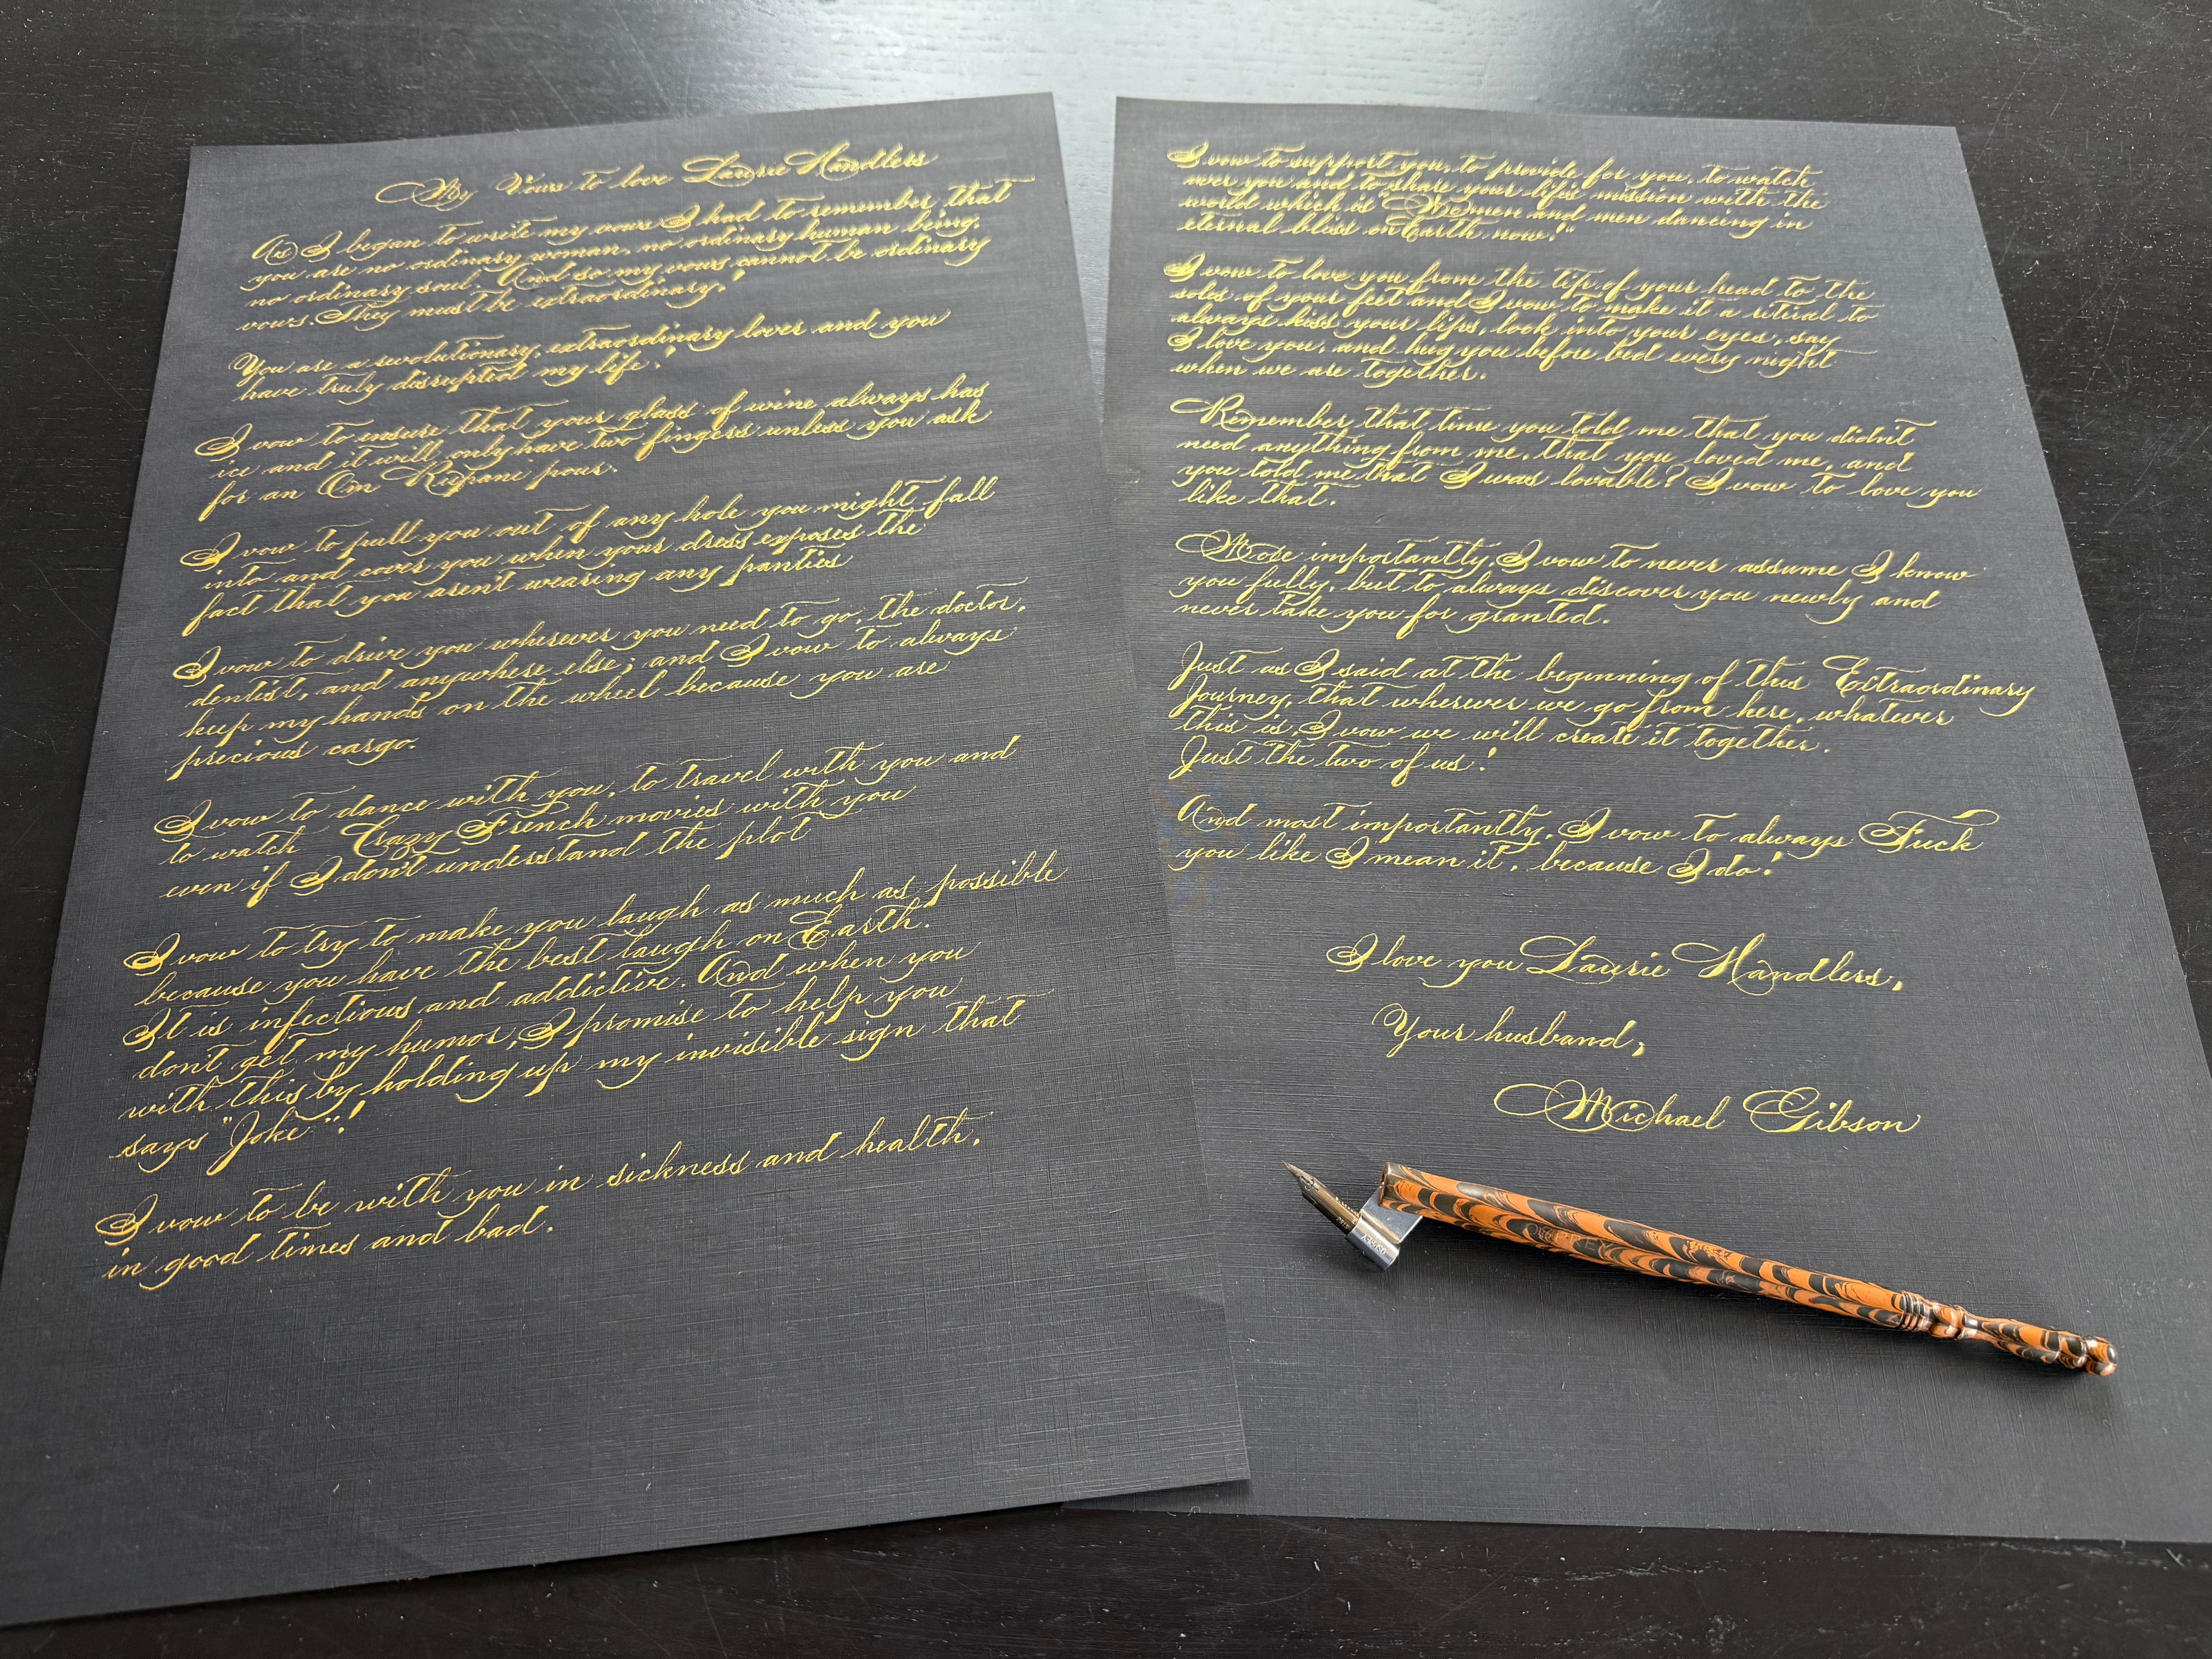 My Vows to love Laurie Handlers
As I began to write my vows I had to remember that
you are no ordinary woman, no ordinary human being,
no ordinary soul. And so my vows cannot be ordinary
vows. They must be extraordinary!
You are a revolutionary, extraordinary lover and you
have truly disrupted my life!
I vow to ensure that your glass of wine always has
ice and it will only have two fingers unless you ask
for an Om Rupani pour.
I vow to pull you out of any hole you might fall
into and cover you when your dress exposes the
fact that you aren't wearing any panties
I vow to drive you wherever you need to go, the doctor,
dentist, and anywhere else; and I vow to always
keep my hands on the wheel because you are
precious cargo.
I vow to dance with you, to travel with you and
to watch Crazy French movies with you
even if I don't understand the plot
I vow to try to make you laugh as much as possible
because you have the best laugh on Earth.
It is infectious and addictive. And when you
don't get my humor, I promise to help you
with this by holding up my invisible sign that
says "Joke"!
I vow to be with you in sickness and health,
in good times and bad.
I vow to support you, to provide for you, to watch
over you and to share your life's mission with the
world which is "Women and men dancing in
eternal bliss on Earth now!"
I vow to love you from the tip of your head to the
soles of your feet and I vow to make it a ritual to
always kiss your lips, look into your eyes, say
I love you, and hug you before bed every night
when we are together.
Remember that time you told me that you didn't
need anything from me, that you loved me, and
you told me that I was lovable? I vow to love you
like that.
More importantly, I vow to never assume I know
you fully, but to always discover you newly and
never take you for granted.
Just as I said at the beginning of this Extraordinary
Journey, that wherever we go from here, whatever
this is, I vow we will create it together.
Just the two of us!
And most importantly, I vow to always Fuck
you like I mean it, because I do!
I love you Laurie Handlers,
Your husband,
Michael Gibson